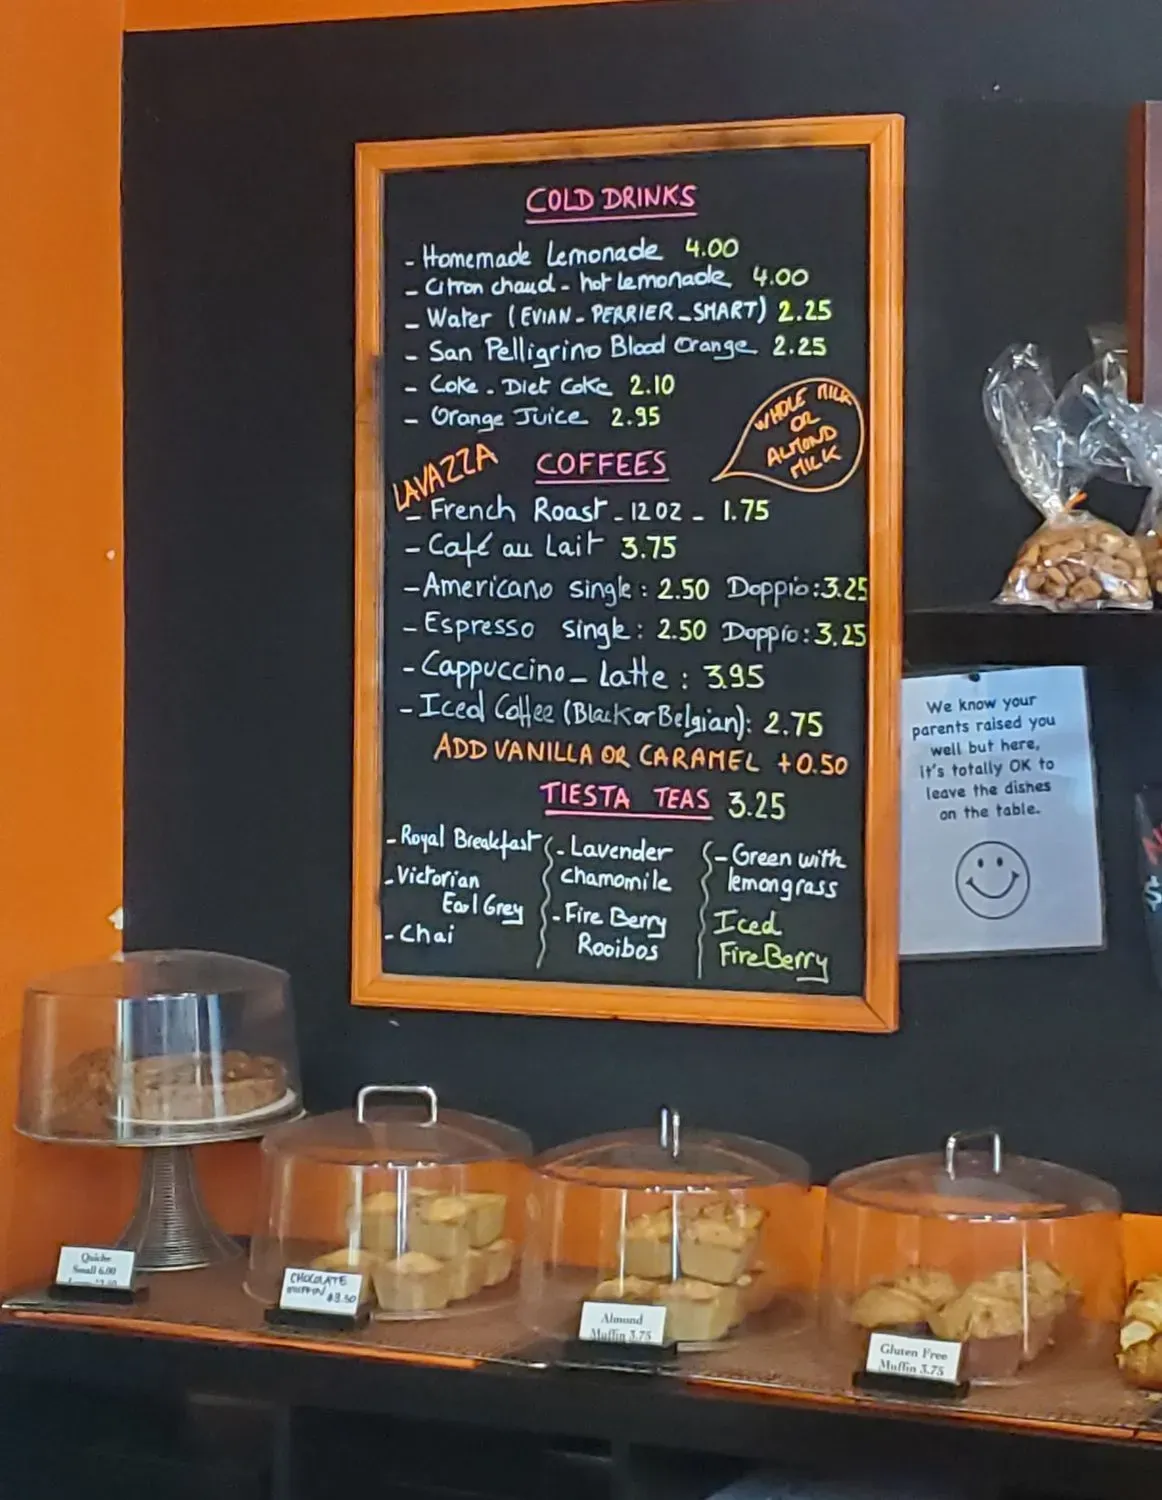 COLD DRINKS
- Homemade Lemonade 4.00
- Citron chaud - hot lemonade 4.00
- Water (EVIAN - PERRIER - SMART) 2.25
- San Pelligrino Blood Orange 2.25
- Coke - Diet Coke 2.10
- Orange Juice 2.95
WHOLE MILK
OR
ALMOND
MILK
LAVAZZA
COFFEES
- French Roast - 12 OZ - 1.75
- Café au Lait 3.75
- Americano single : 2.50 Doppio : 3.25
- Espresso single : 2.50 Doppio : 3.25
- Cappuccino - Latte : 3.95
- Iced Coffee (Black or Belgian) : 2.75
ADD VANILLA OR CARAMEL +0.50
TIESTA TEAS 3.25
- Royal Breakfast
- Victorian
Earl Grey
- Chai
- Lavender
chamomile
- Fire Berry
Rooibos
- Green with
lemongrass
Iced
FireBerry
We know your
parents raised you
well but here,
it's totally OK to
leave the dishes
on the table.
Quiche
Small 6.00
CHOCOLATE
MUFFIN $3.50
Almond
Muffin 3.75
Gluten Free
Muffin 3.75